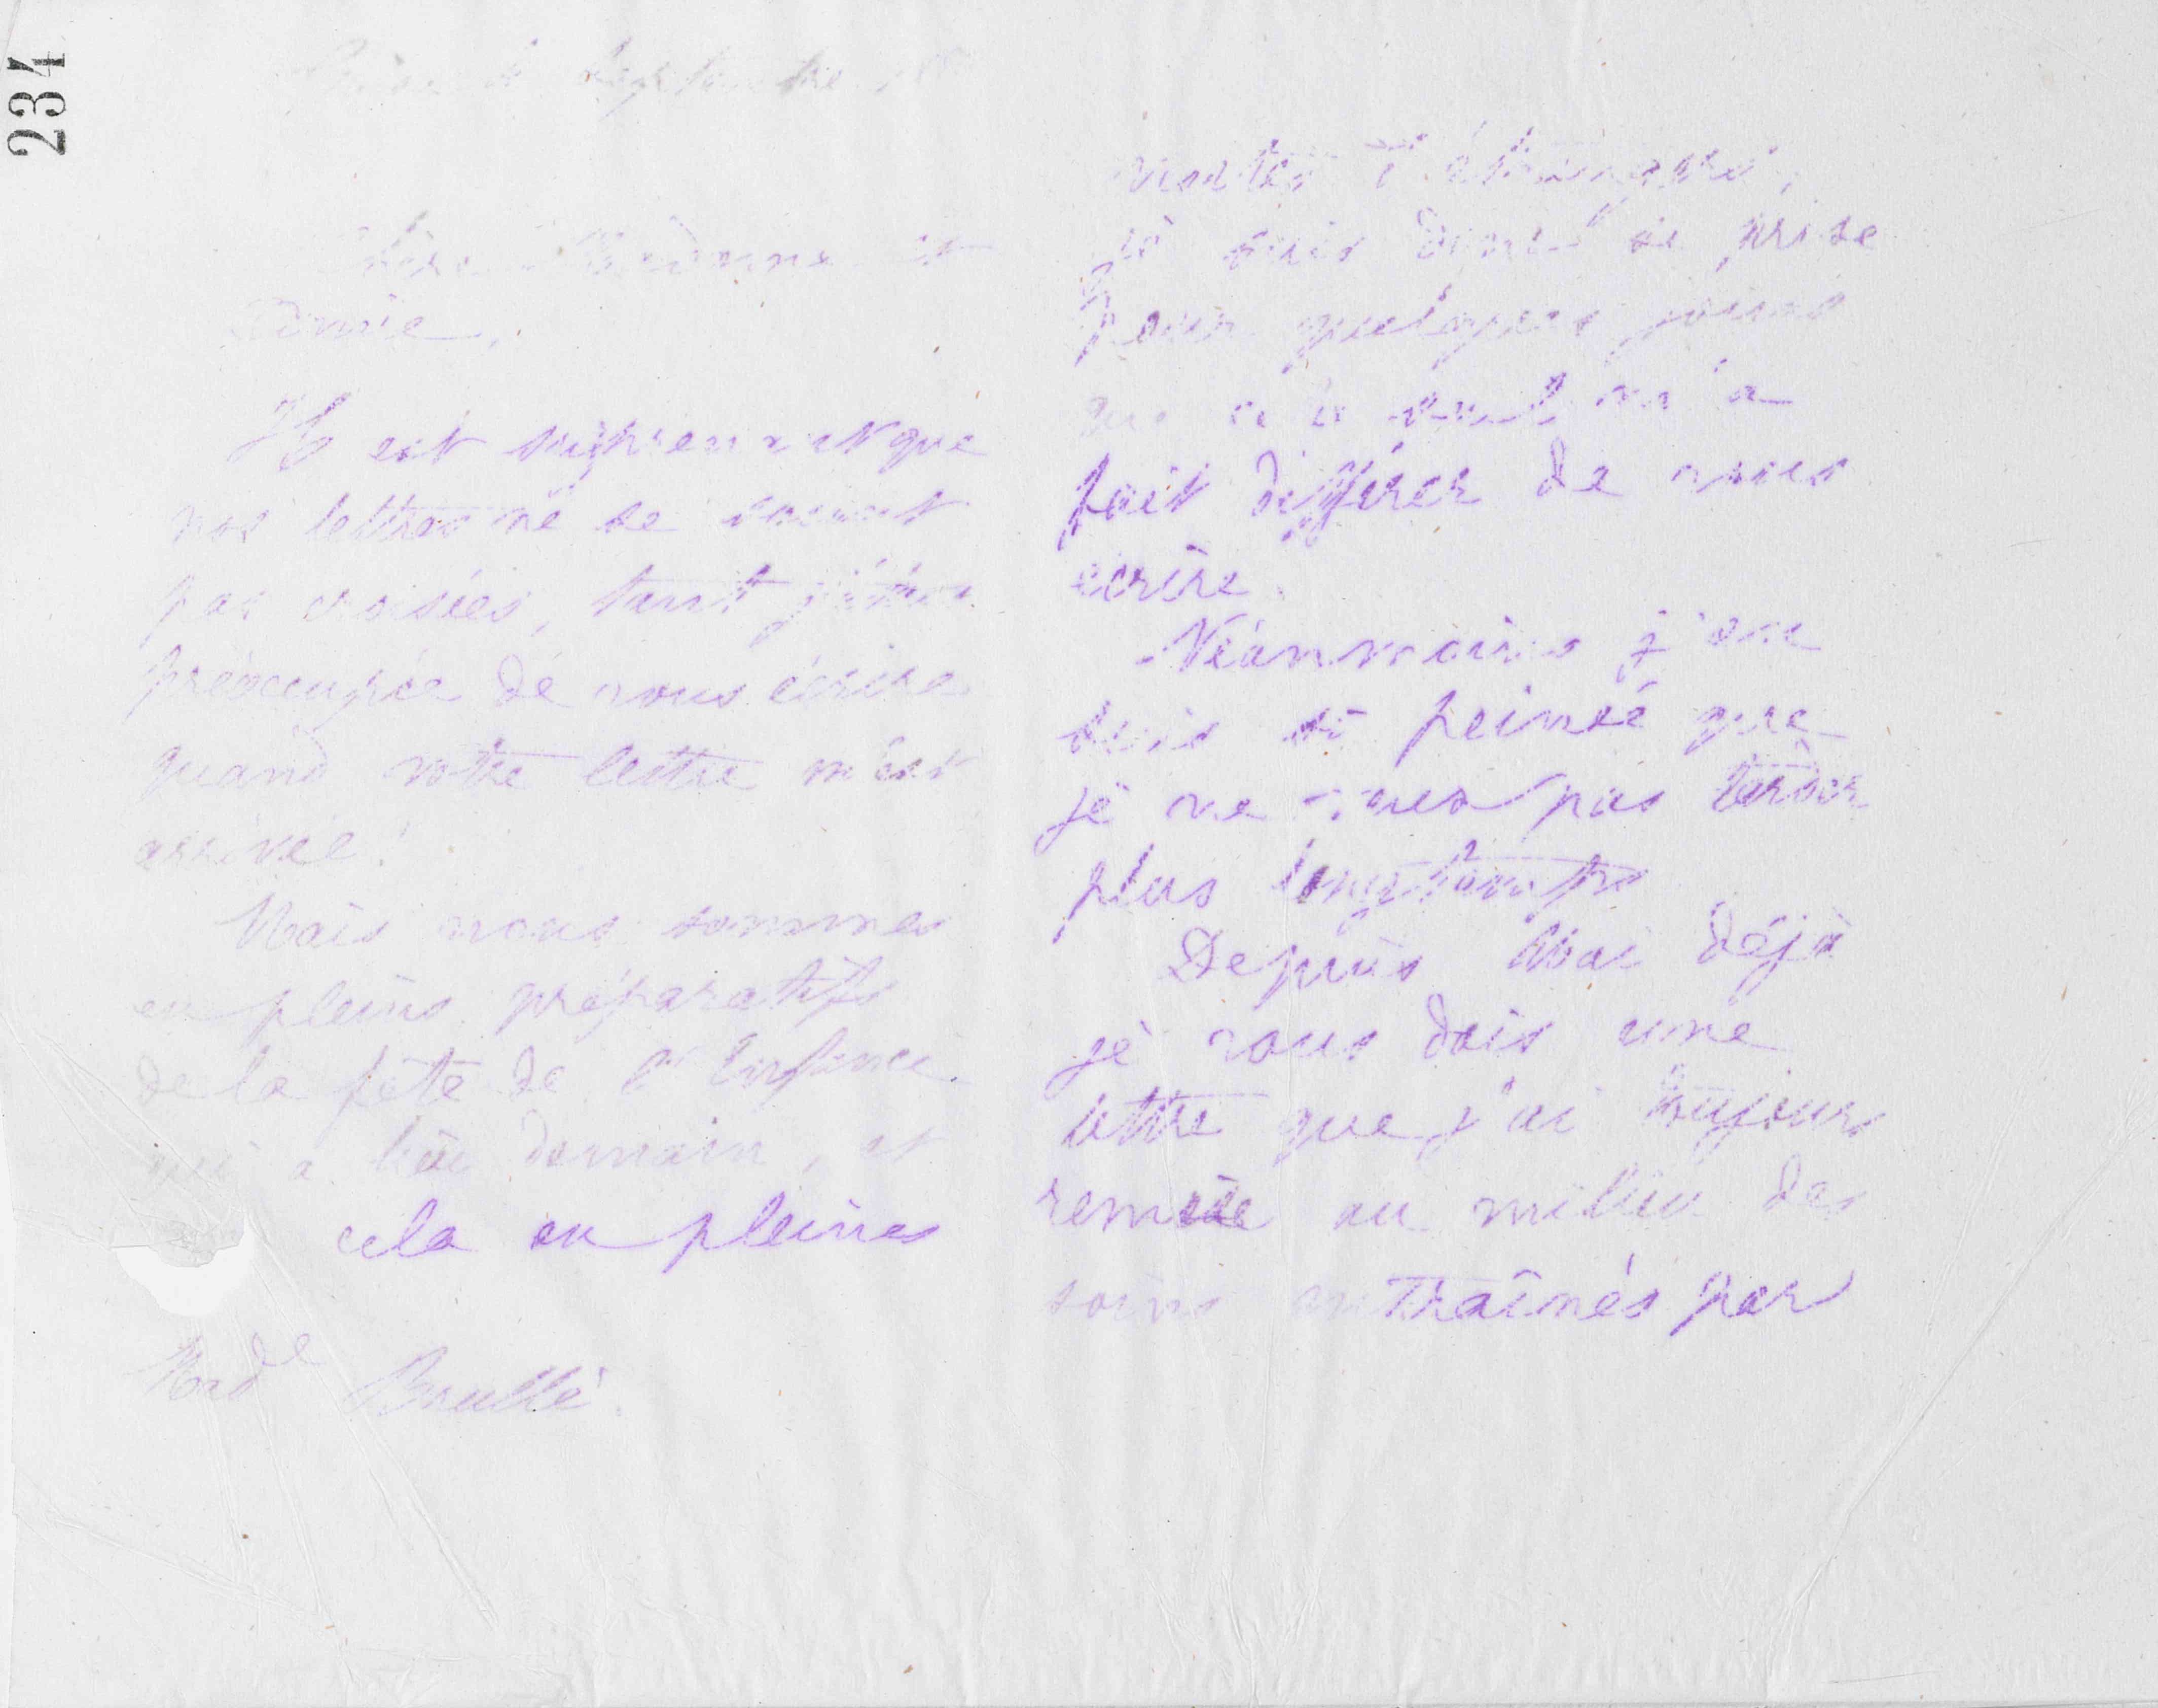 234
Septembre
Chère Madame et
Amie,
Il est surprenant que
nos lettres ne se soient
pas croisées, tant j'étais
préoccupée de vous écrire
quand votre lettre m'est
arrivée!
Mais nous sommes
en pleins préparatifs
de la fête de l'Enfance
qui a lieu demain, et
cela en pleines
Mad^de Brullé.
je suis donc si prise
pour quelques jours
que cela seul m'a
fait différer de vous
écrire.
Néanmoins j'en
suis si peinée que
je ne veux pas tarder
plus longtemps
Depuis Mai déjà
je vous dois une
lettre que j'ai toujours
remise au milieu des
soins entraînés par